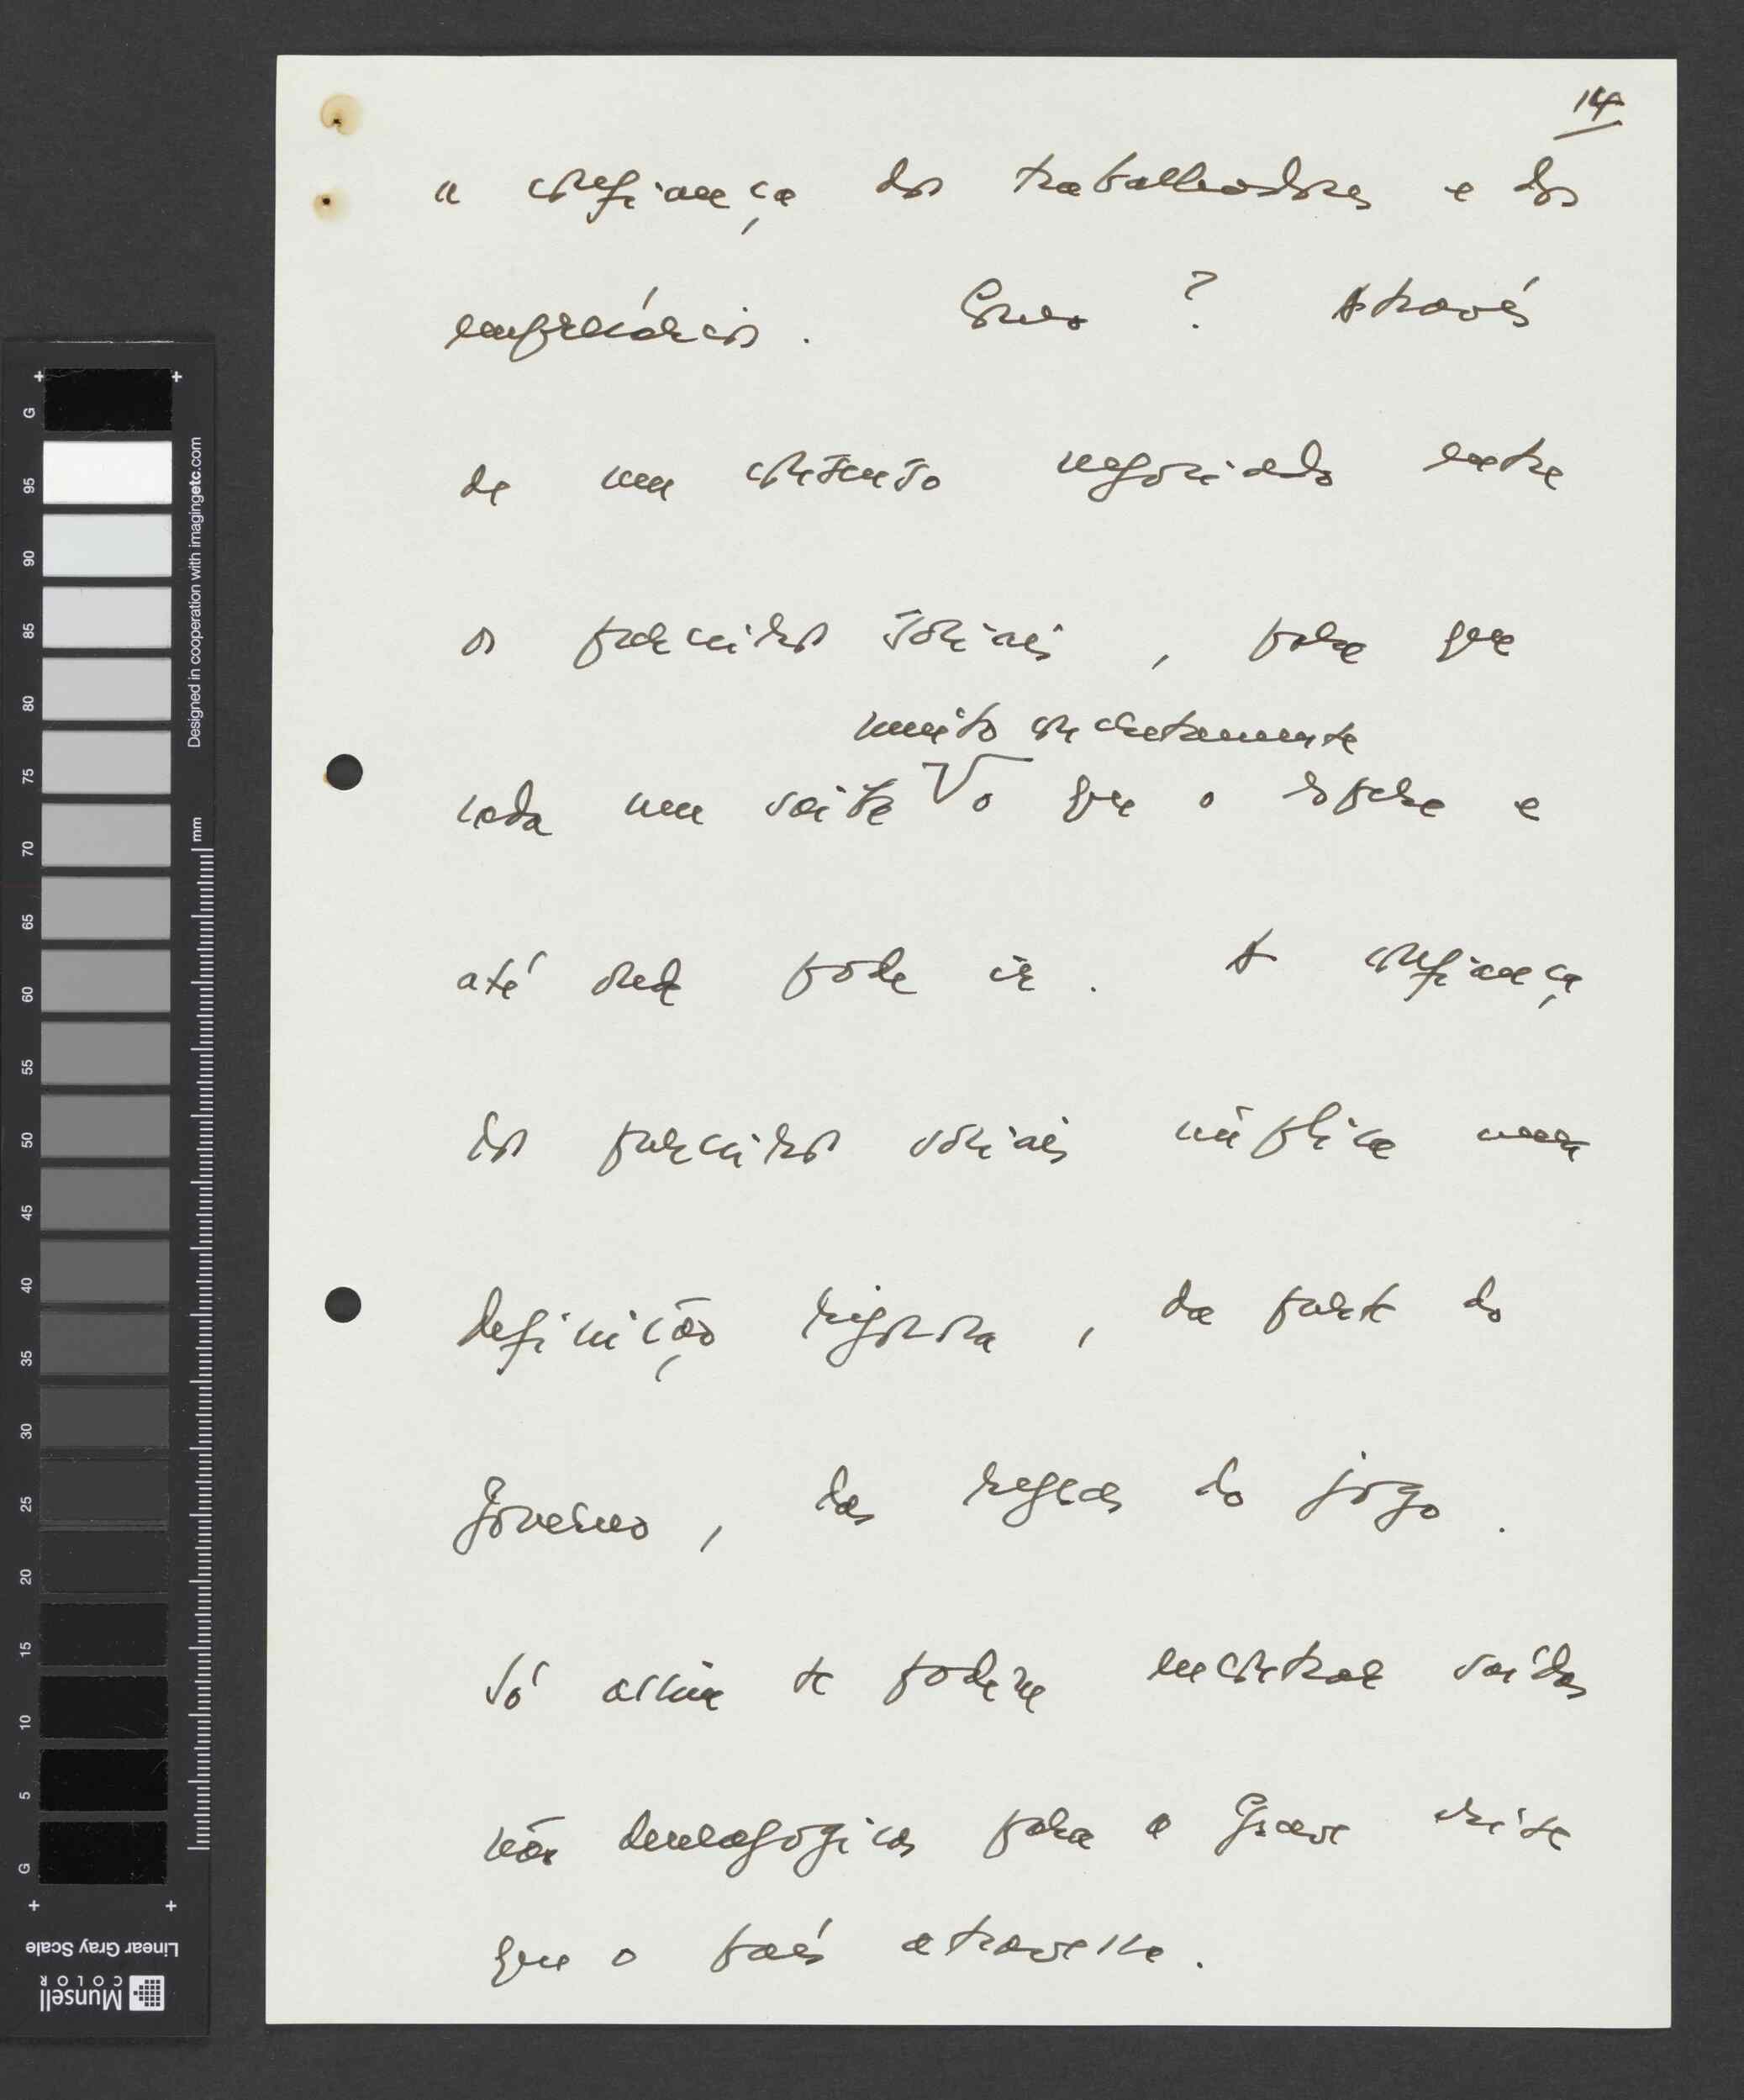 14
a confiança dos trabalhadores e dos
empresários. Como? Através
de um consenso negociado entre
os parceiros sociais, para que
muito concretamente
cada um saiba o que o espera e
até onde pode ir. A confiança
dos parceiros sociais implica uma
definição rigorosa, da parte do
Governo, das regras do jogo.
Só assim se poderá encontrar saídas
não demagógicas para a grave crise
que o país atravessa.
G
95
90
85
80
75
70
65
60
55
50
45
40
35
30
25
20
15
10
5
G
Designed in cooperation with imagingetc.com
mm
Linear Gray Scale
Munsell
COLOR